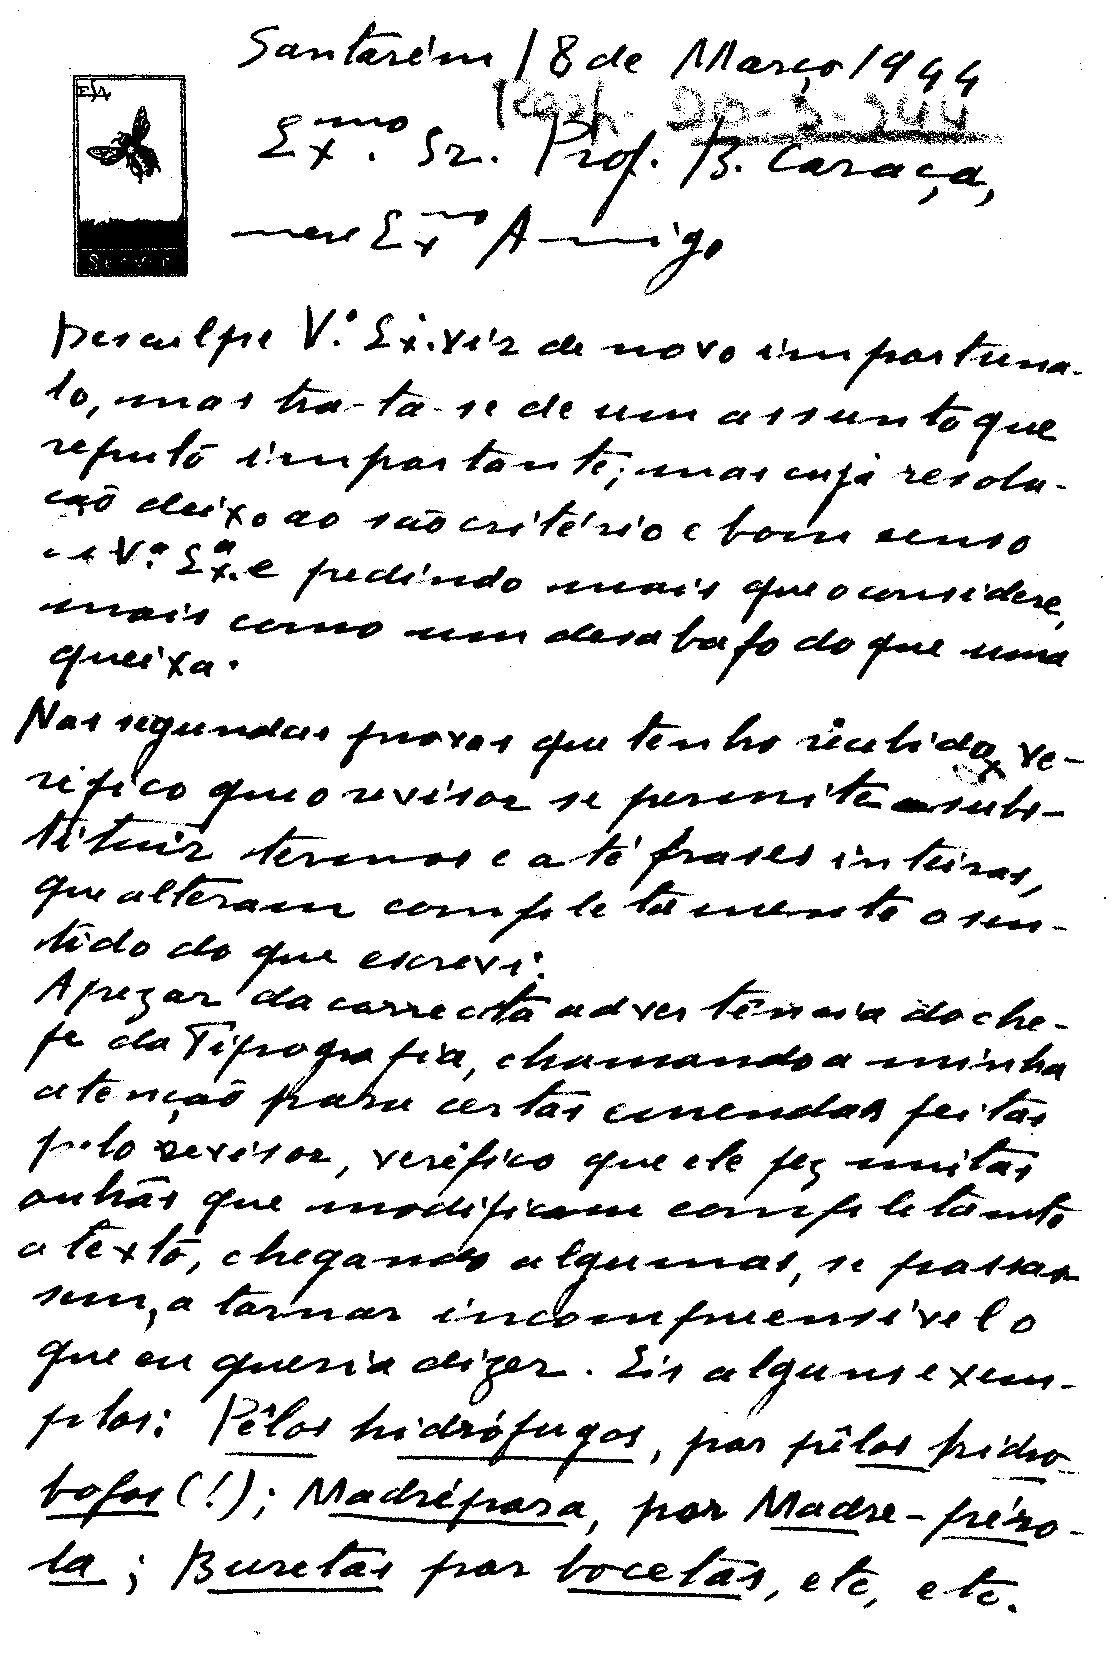 Santarém 18 de Março 1944
Resp. 20-3-944
ESA
Ex.mo Sr. Prof. B. Caraça,
meu Exmo Amigo
Servir
Desculpe V.ª Ex. vir de novo importuna-
lo, mas trata-se de um assunto que
reputo importante; mas cuja resolu-
ção deixo ao são critério e bom senso
de V.ª Ex.ª e pedindo mais que o considere,
mais como um desabafo do que uma
queixa.
Nas segundas provas que tenho recebido, ve-
rifico que o revisor se permite subs-
tituir termos e até frases inteiras,
que alteram completamente o sen-
tido do que escrevi.
Apezar da correcta advertência do che-
fe da Tipografia, chamando a minha
atenção para certas emendas feitas
pelo revisor, verifico que ele fez muitas
outras que modificam completamte
o texto, chegando algumas, se passas
sem, a tornar incompreensível o
que eu queria dizer. Eis alguns exem-
plos: Pêlos hidrófugos, por pêlos hidro
bofos (!); Madrépora, por Madre-péro-
la; Buretas por bocetas, etc, etc.